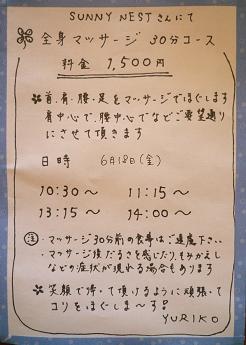 SUNNY NEST さんにて
全身マッサージ 30分コース
料金 1,500円
首・肩・腰・足をマッサージでほぐします
背中心で、腰中心でなどご要望通り
にさせて頂きます
日時 6月18日(金)
10:30〜 11:15〜
13:15〜 14:00〜
注 ・マッサージ30分前の食事はご遠慮下さい
・マッサージ後だるさを感じたり、もみかえし
などの症状が現れる場合もあります
笑顔で帰って頂けるように頑張って
コリをほぐしま〜す!
YURIKO